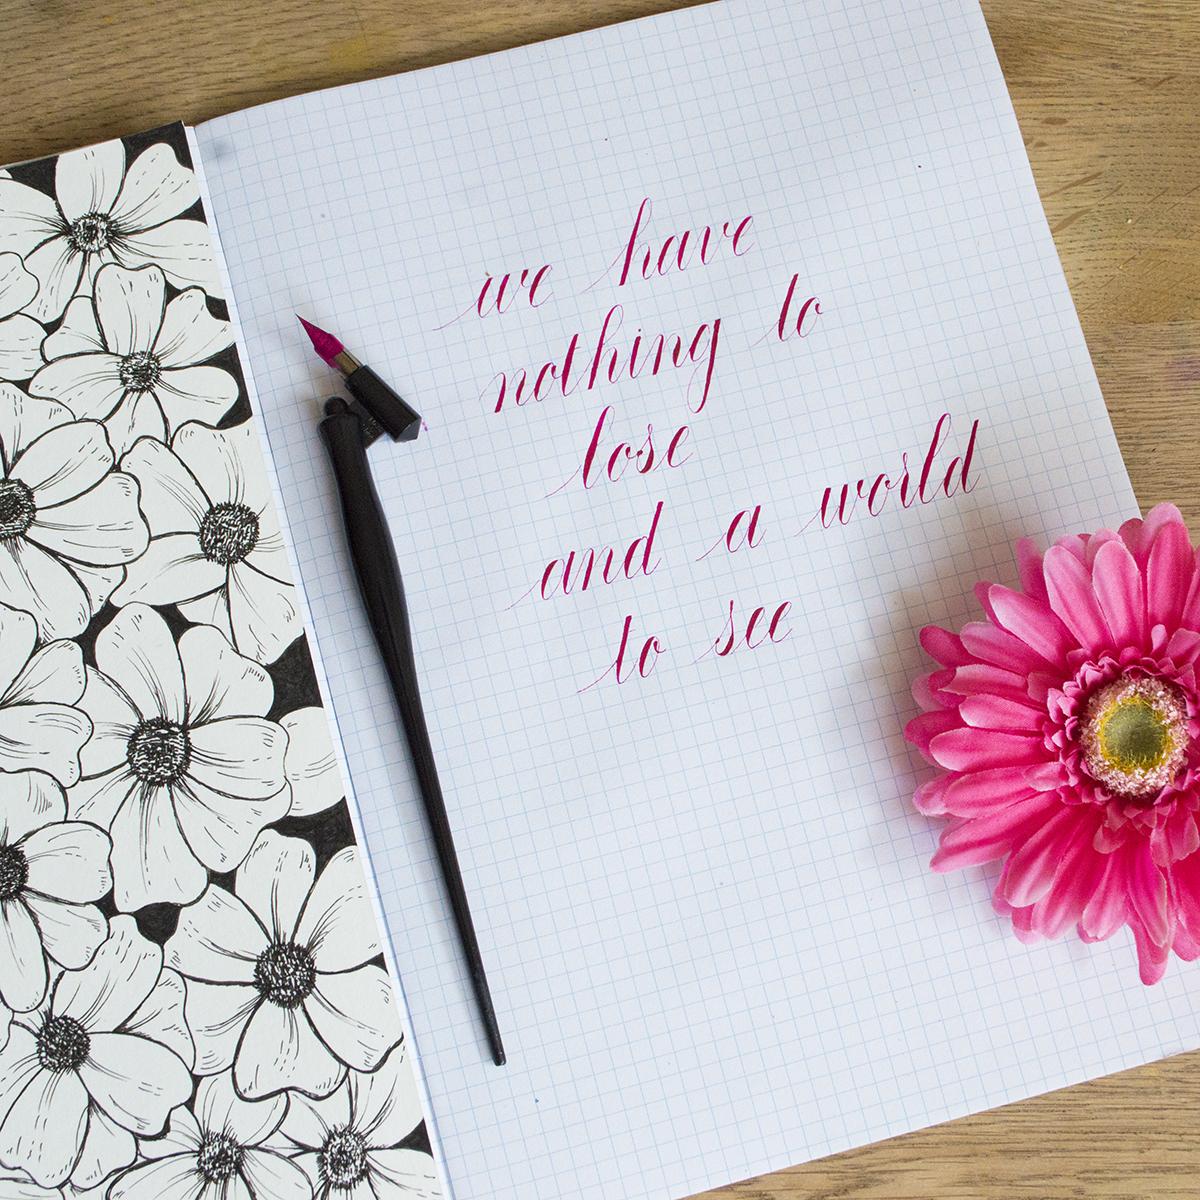 we have
nothing to
lose
and a world
to see